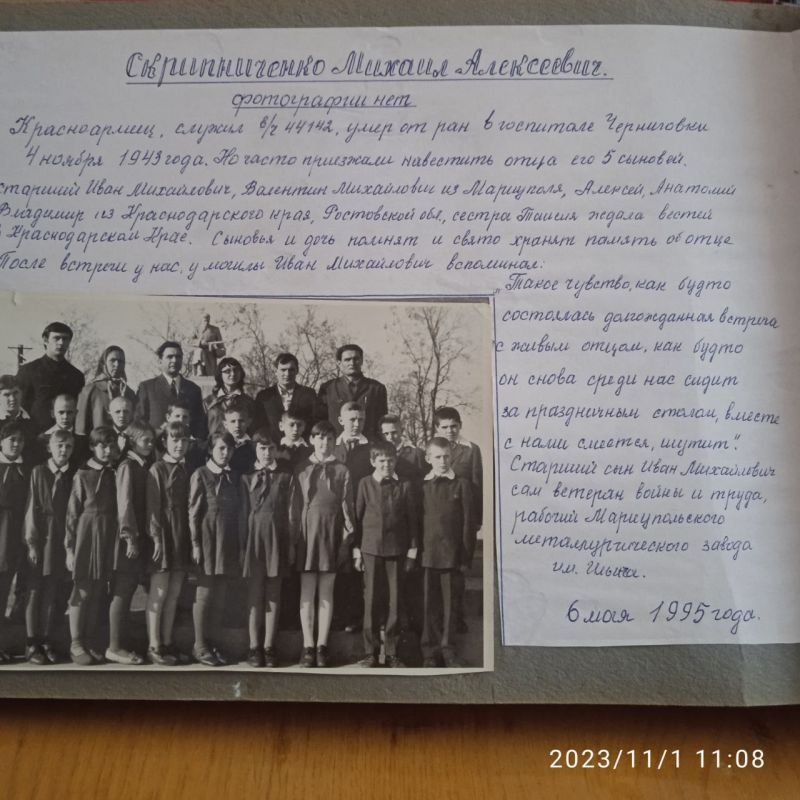 Скрипниченко Михаил Алексеевич.
фотографии нет
Красноармеец, служил в/ч 44142, умер от ран в госпитале Черниговки
4 ноября 1943 года. Но часто приезжали навестить отца его 5 сыновей.
старший Иван Михайлович, Валентин Михайлович из Мариуполя, Алексей, Анатолий
Владимир из Краснодарского края, Ростовской обл, сестра Таисия ждала вестей
в Краснодарском Крае. Сыновья и дочь помнят и свято хранят память об отце
После встречи у нас, у могилы Иван Михайлович вспоминал:
„Такое чувство, как будто
состоялась долгожданная встреча
с живым отцом, как будто
он снова среди нас сидит
за праздничным столом, вместе
с нами смеется, шутит".
Старший сын Иван Михайлович
сам ветеран войны и труда,
рабочий Мариупольского
металлургического завода
им. Ильича.
6 мая 1995 года.
2023/11/1 11:08